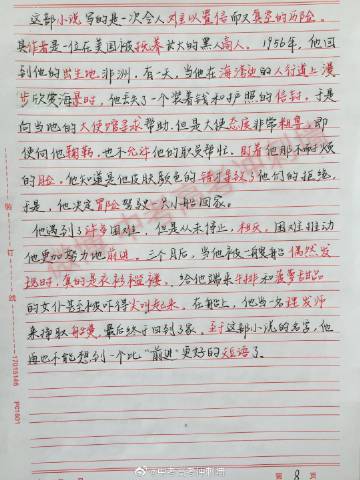 这部小说写的是一次令人难以置信而又真实的历险。
其作者是一位在美国被抚养长大的黑人商人。1956年,他回
到他的出生地非洲,有一天,当他在海滩边的人行道上漫
步欣赏海景时,他丢了一个装着钱和护照的信封。于是
向当地的大使馆寻求帮助,但是大使态度非常粗鲁,即
使向他鞠躬,也不允许他的职员帮忙。盯着他那不耐烦
的脸,他知道是他皮肤颜色的
了他们的拒绝,
于是,他决定冒险驾驶一只小船回家。
他遇到了许多困难,但是从未停止,相反,困难推动
他更加努力地前进。三个月后,当他被一艘船偶然发
现时,真的是衣衫褴褛,给他端来牛排和菠萝甜品
的女仆甚至被吓得尖叫起来。在船上,他当一名理发师
来挣取船费,最后终于回到了家。至于这部小说的名字,他
再也不能想到一个比“前进”更好的短语了。
装订线
17015146
PC1601
第 8 页